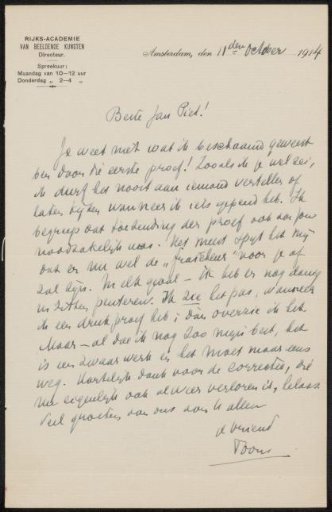 RIJKS-ACADEMIE
VAN BEELDENDE KUNSTEN
Directeur.
Spreekuur:
Maandag van 10—12 uur
Donderdag „ 2—4 „
Amsterdam, den 11den October 1914
Beste Jan Piet!
Je weet niet wat ik beschaamd geweest
ben door die eerste proef! Zooals ik je wel zei,
ik durf het nooit aan iemand vertellen of
laten kijken wanneer ik iets gepend heb. Ik
begreep dat toezending der proef ook aan jou
noodzakelijk was. Het meest spijt het mij
dat er nu wel de „ voor je af
zal zijn. In elk geval — ik heb er nog danig
in zitten peuteren. Ik zie het pas, wanneer
ik een drukproef heb; dan overzie ik het.
Maar — al doe ik nog zoo mijn best, het
is een zwaar werk en het moet maar eens
weg. Hartelijk dank voor de correctie, die
nu eigenlijk ook alweer verloren is, helaas
Veel groeten van ons aan u allen
je vriend
Toon